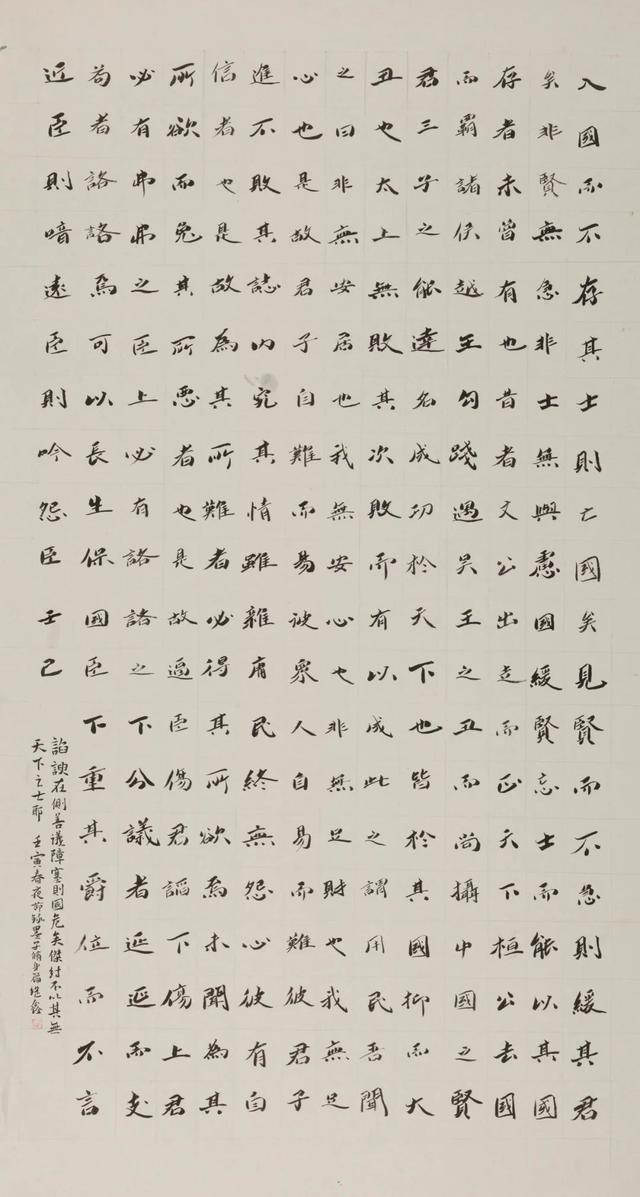 入國而不存其士則亡國矣見賢而不急則緩其君
矣非賢無急非士無與慮國緩賢忘士而能以其國
存者未曾有也昔者文公出走而正天下桓公去國
而霸諸侯越王勾踐遇吳王之丑而尚攝中國之賢
君三子之能達名成功於天下也皆於其國抑而大
丑也太上無敗其次敗而有以成此之謂用民吾聞
之曰非無安居也我無安心也非無足財也我無足
心也是故君子自難而易彼眾人自易而難彼君子
進不敗其誌內究其情雖雜庸民終無怨心彼有自
信者也是故為其所難者必得其所欲焉未聞為其
所欲而免其所惡者也是故逼臣傷君謟下傷上君
必有弗弗之臣上必有詻詻之下分議者延延而支
苟者詻詻焉可以長生保國臣下重其爵位而不言
近臣則喑遠臣則吟怨臣壬己
諂諛在側善議障塞則國危矣傑紂不以其無
天下之士耶 壬寅春夜節錄墨子